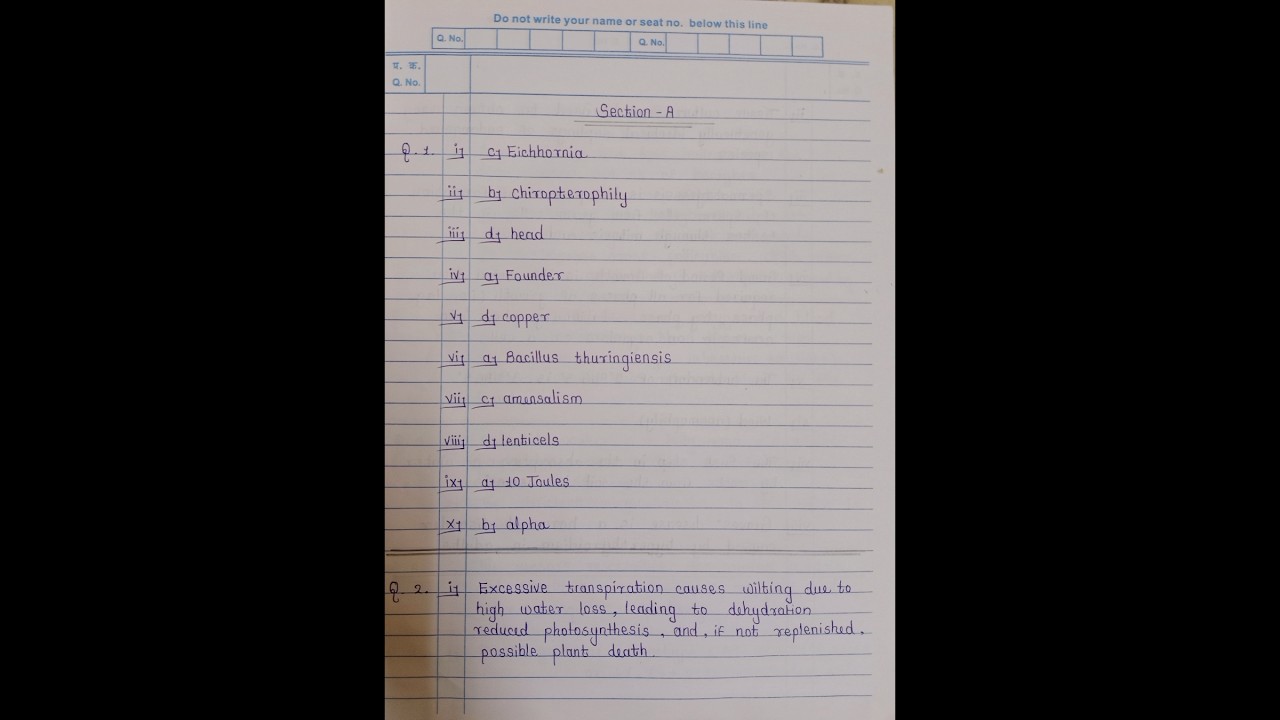 Do not write your name or seat no. below this line
Q. No. Q. No.
प्र. क्र.
Q. No.
Section - A
Q. 1. i) c) Eichhornia
ii) b) chiropterophily
iii) d) head
iv) a) Founder
v) d) copper
vi) a) Bacillus thuringiensis
vii) c) amensalism
viii) d) lenticels
ix) a) 10 Joules
x) b) alpha
Q. 2. i) Excessive transpiration causes wilting due to
high water loss, leading to dehydration
reduced photosynthesis, and, if not replenished,
possible plant death.